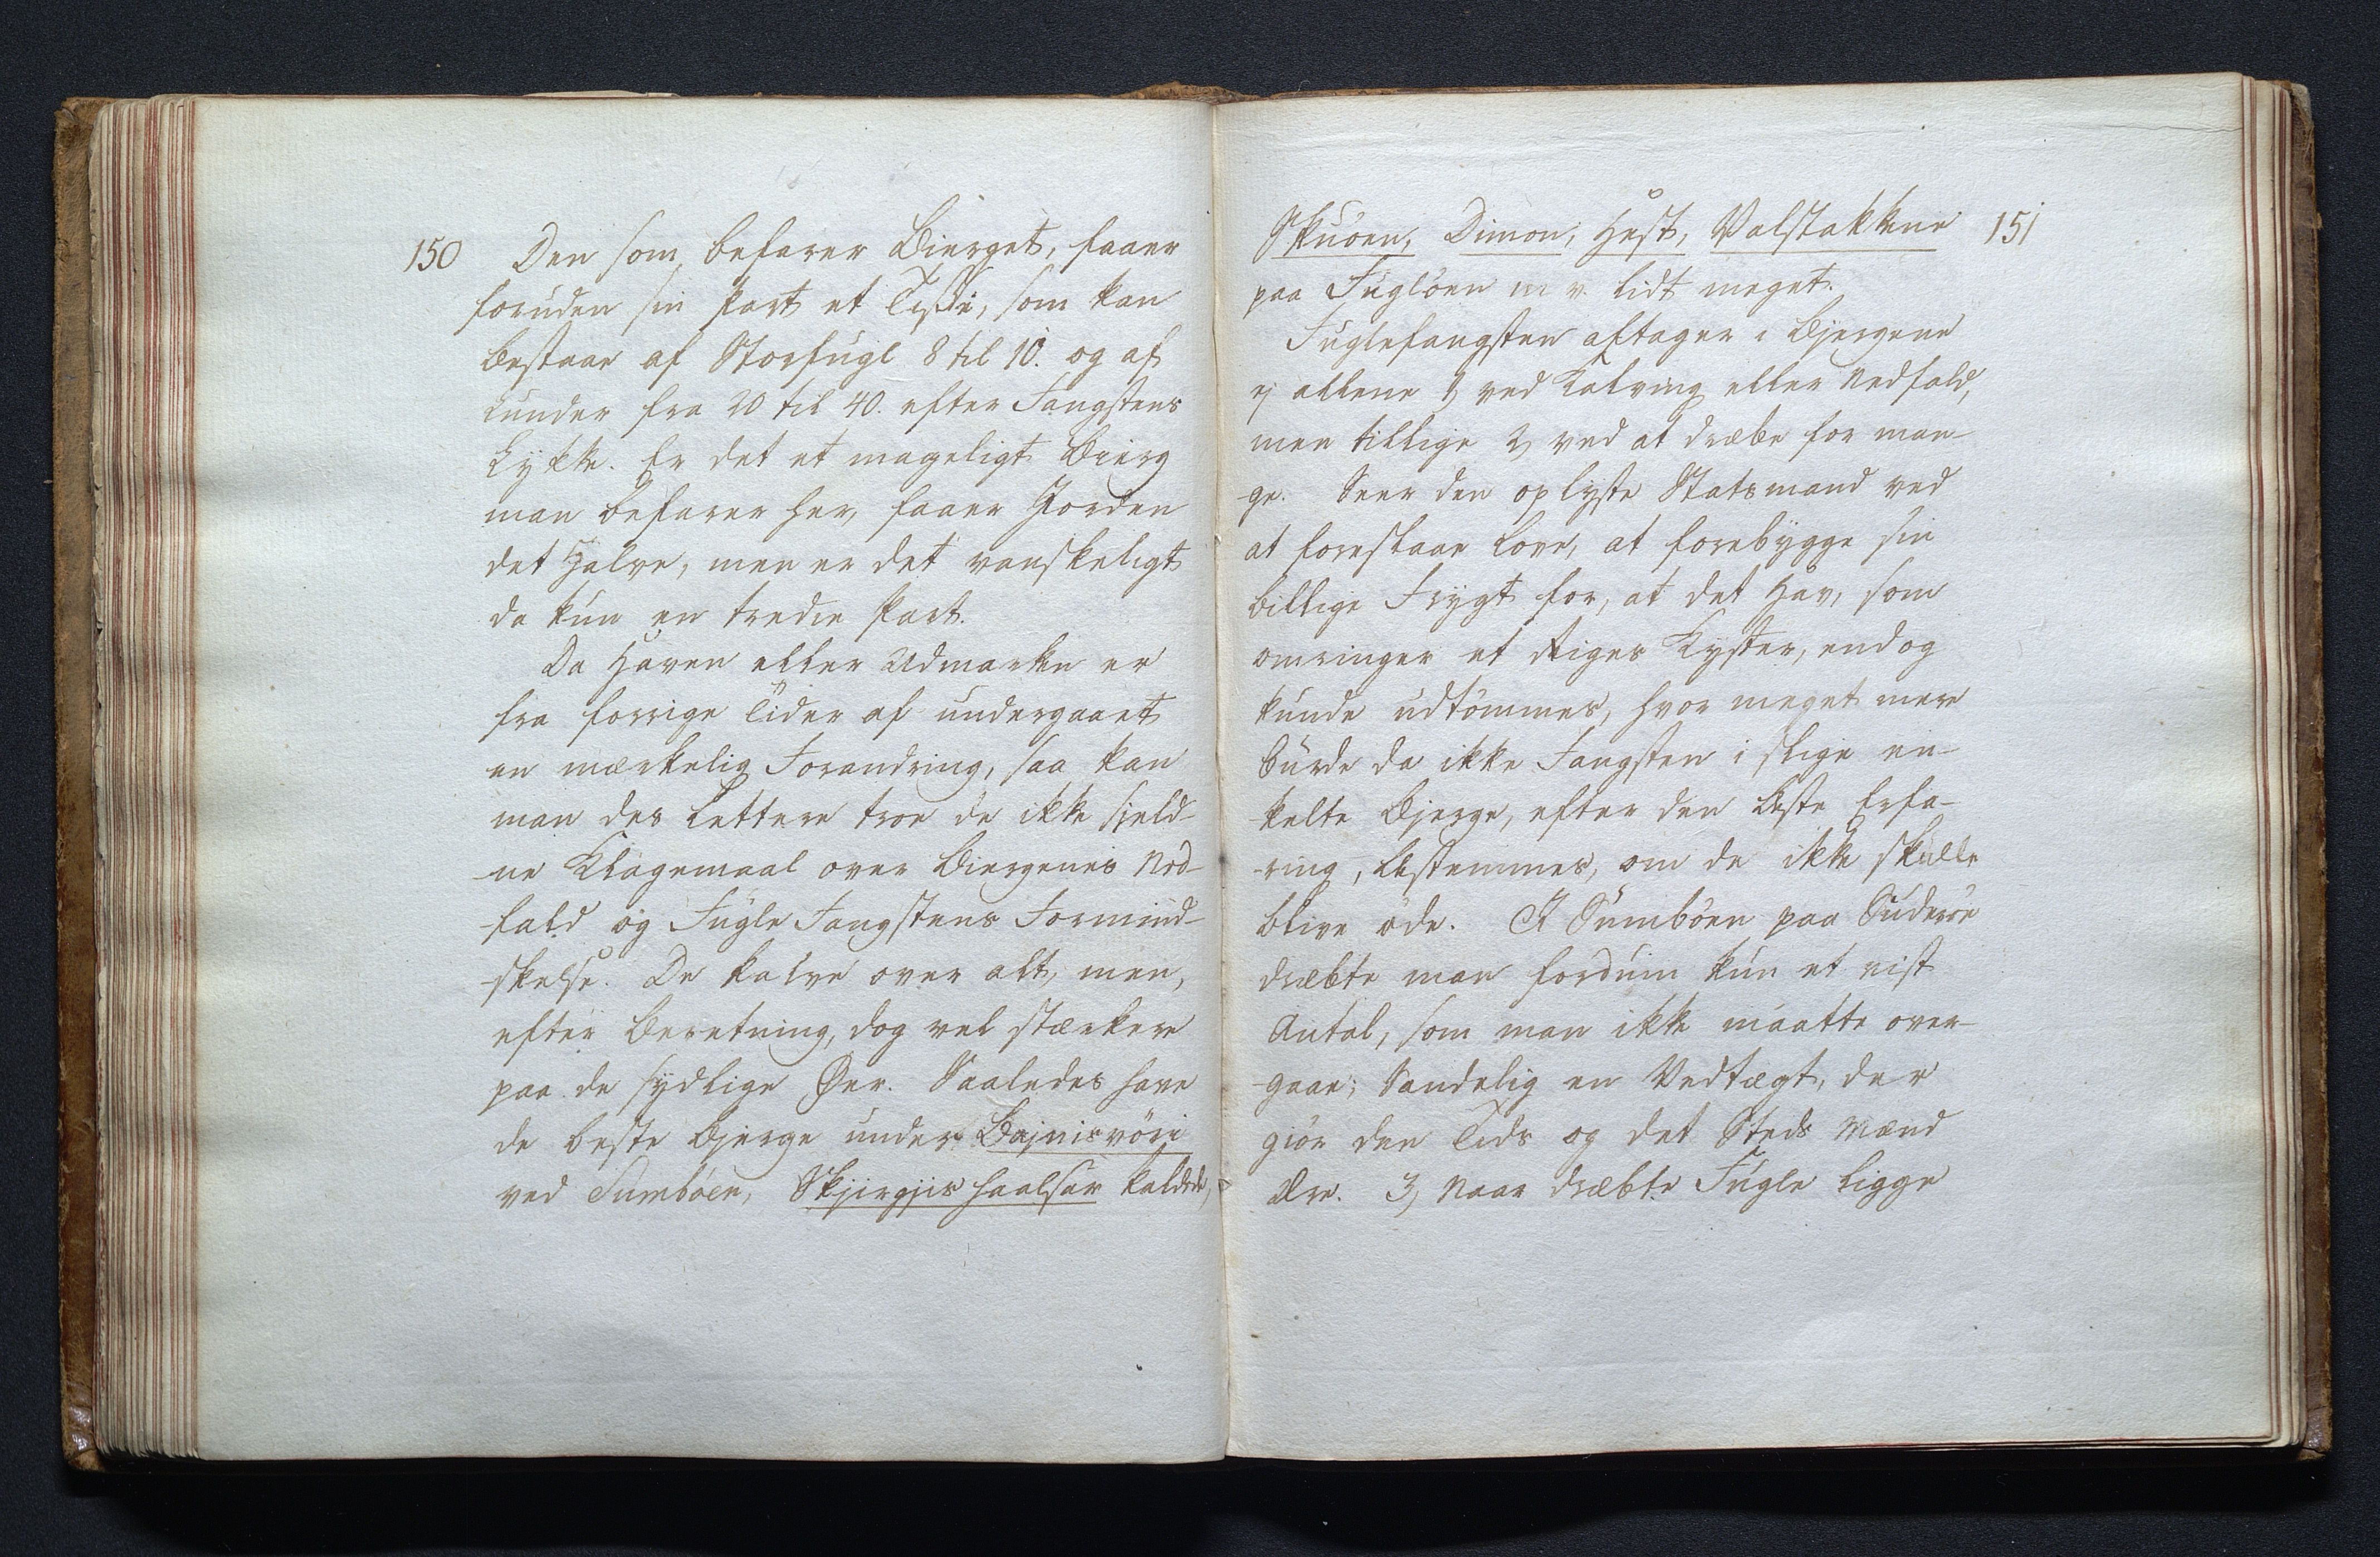 150 Den som befarer Bierget, faaer
foruden sin Part et Tissi, som kan
bestaae af Storfugl 8 til 10. og af
Lunder fra 20 til 40. efter Fangstens
Lykke. Er det et mageligt Bierg
man befarer her, faaer Jorden
det Halve, men er det vanskeligt
da kun en tredie Part.
Da Haven eller Udmarken er
fra forrige Tider af undergaaet
en mærkelig Forandring, saa kan
man des lettere troe de ikke sield-
-ne Klagemaal over Biergenes Ned-
-fald og Fugle Fangstens Formind-
-skelse. De kalve over alt, men,
efter Beretning, dog vel stærkere
paa de sydlige Øer. Saaledes have
de beste Bjerge under Bajnisvöri
ved Sumböen, Skjirgjis haalsar kaldede,
Skuöen, Dimon, Hest, Valstakkene 151
paa Fuglöen m v. lidt meget.
Fuglefangsten aftager i Bjergene
ej allene 1) ved Kalving eller Nedfald,
men tillige 2) ved at dræbe for man-
-ge. Seer den oplyste Statsmand ved
at foreslaae Love, at forebygge sin
billige Frygt for, at det Hav, som
omringer et Riges Kyster, endog
kunde udtömmes, hvor meget mere
burde da ikke Fangsten i slige en-
-kelte Bjerge, efter den beste Erfa-
-ring, bestemmes, om de ikke skulle
blive öde. I Sumböen paa Suderöe
dræbte man fordum kun et vist
Antal, som man ikke maatte over-
-gaae; Sandelig en Vedtægt, der
giör den Tids og det Steds Mænd
Ære. 3) Naar dræbte Fugle ligge